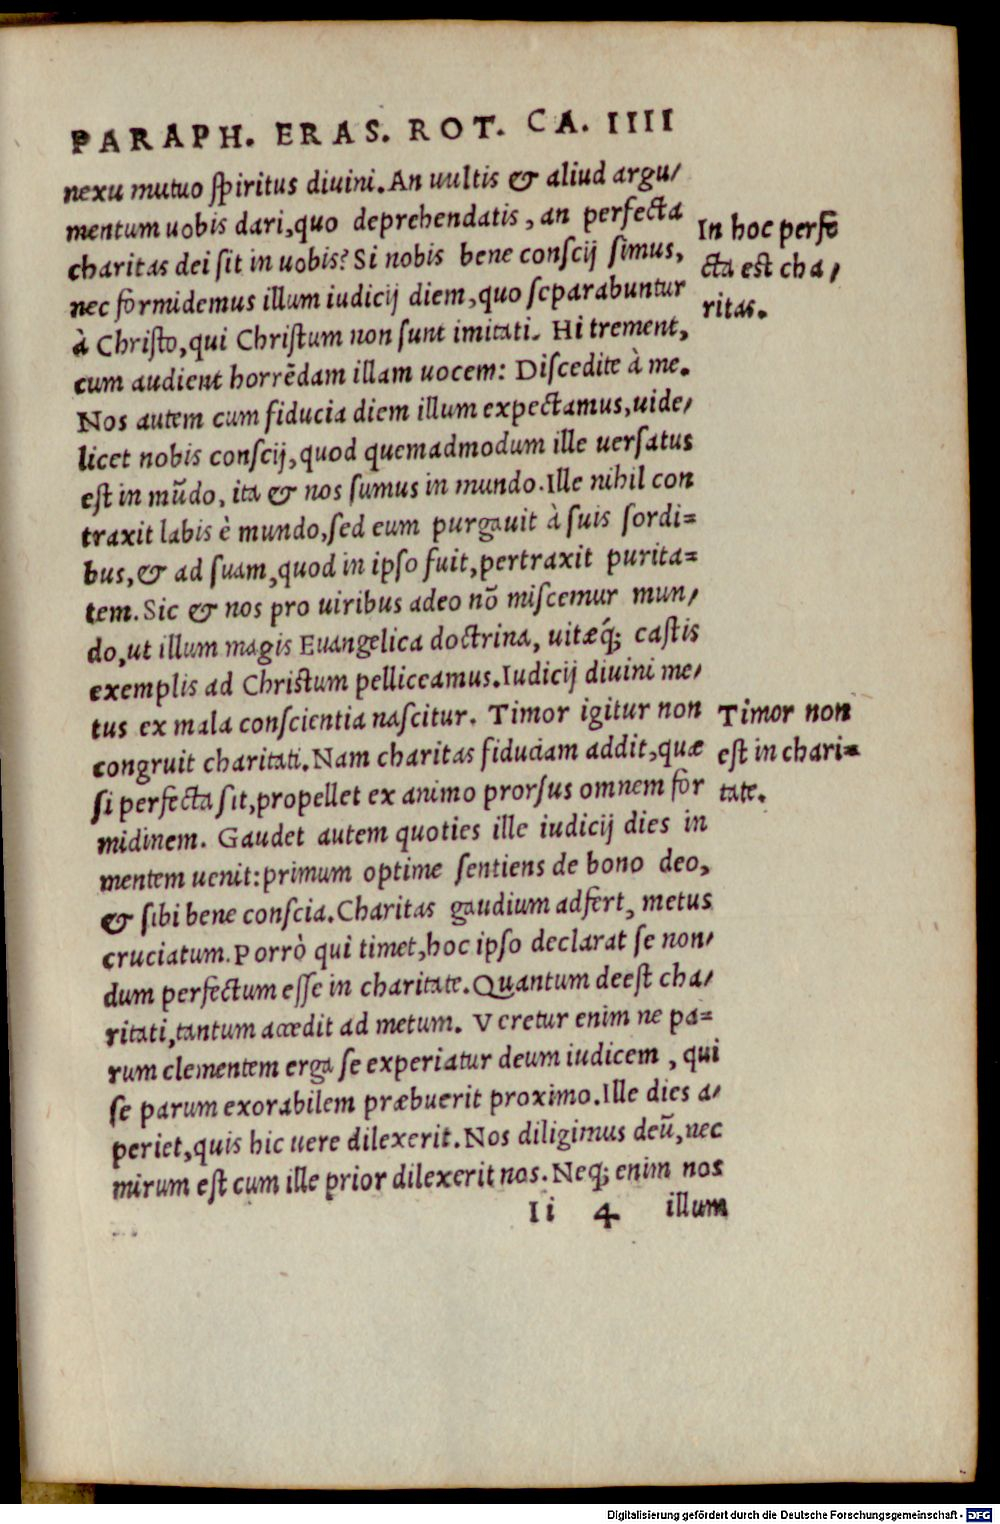 PARAPH. ERAS. ROT. CA. IIII
nexu mutuo spiritus diuini. An uultis & aliud argu/
mentum uobis dari, quo deprehendatis, an perfecta
charitas dei sit in uobis? Si nobis bene conscij simus,
nec formidemus illum iudicij diem, quo separabuntur
à Christo, qui Christum non sunt imitati. Hi trement,
cum audient horrēdam illam uocem: Discedite à me.
Nos autem cum fiducia diem illum expectamus, uide/
licet nobis conscij, quod quemadmodum ille uersatus
est in mūdo, ita & nos sumus in mundo. Ille nihil con
traxit labis è mundo, sed eum purgauit à suis sordi=
bus, & ad suam, quod in ipso fuit, pertraxit purita=
tem. Sic & nos pro uiribus adeo nō miscemur mun/
do, ut illum magis Euangelica doctrina, uitæq́; castis
exemplis ad Christum pelliceamus. Iudicij diuini me/
tus ex mala conscientia nascitur. Timor igitur non
congruit charitati. Nam charitas fiduciam addit, quæ
si perfecta sit, propellet ex animo prorsus omnem for
midinem. Gaudet autem quoties ille iudicij dies in
mentem uenit: primum optime sentiens de bono deo,
& sibi bene conscia. Charitas gaudium adfert, metus
cruciatum. Porrò qui timet, hoc ipso declarat se non/
dum perfectum esse in charitate. Quantum deest cha/
ritati, tantum accedit ad metum. Veretur enim ne pa=
rum clementem erga se experiatur deum iudicem, qui
se parum exorabilem præbuerit proximo. Ille dies a/
periet, quis hic uere dilexerit. Nos diligimus deū, nec
mirum est cum ille prior dilexerit nos. Neq; enim nos
Ii 4 illum
In hoc perfe
cta est cha/
ritas.
Timor non
est in chari=
tate.
Digitalisierung gefördert durch die Deutsche Forschungsgemeinschaft - DFG